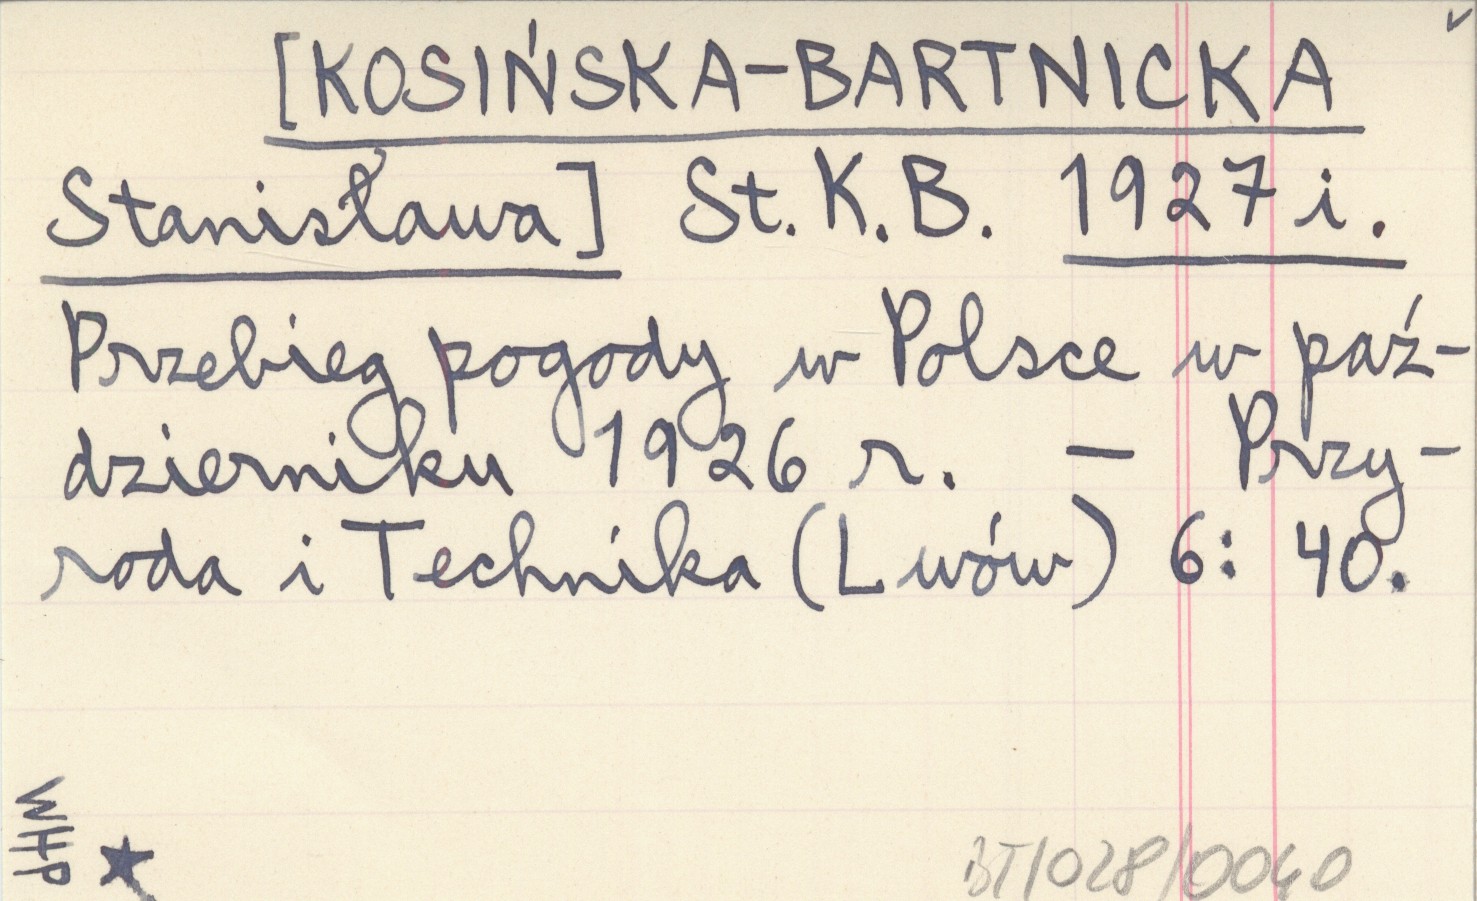 [KOSIŃSKA-BARTNICKA
Stanisława] St. K. B. 1927 i.
Przebieg pogody w Polsce w paź-
dzierniku 1926 r. — Przy-
roda i Technika (Lwów) 6: 40.
WHP
BT/028/0040